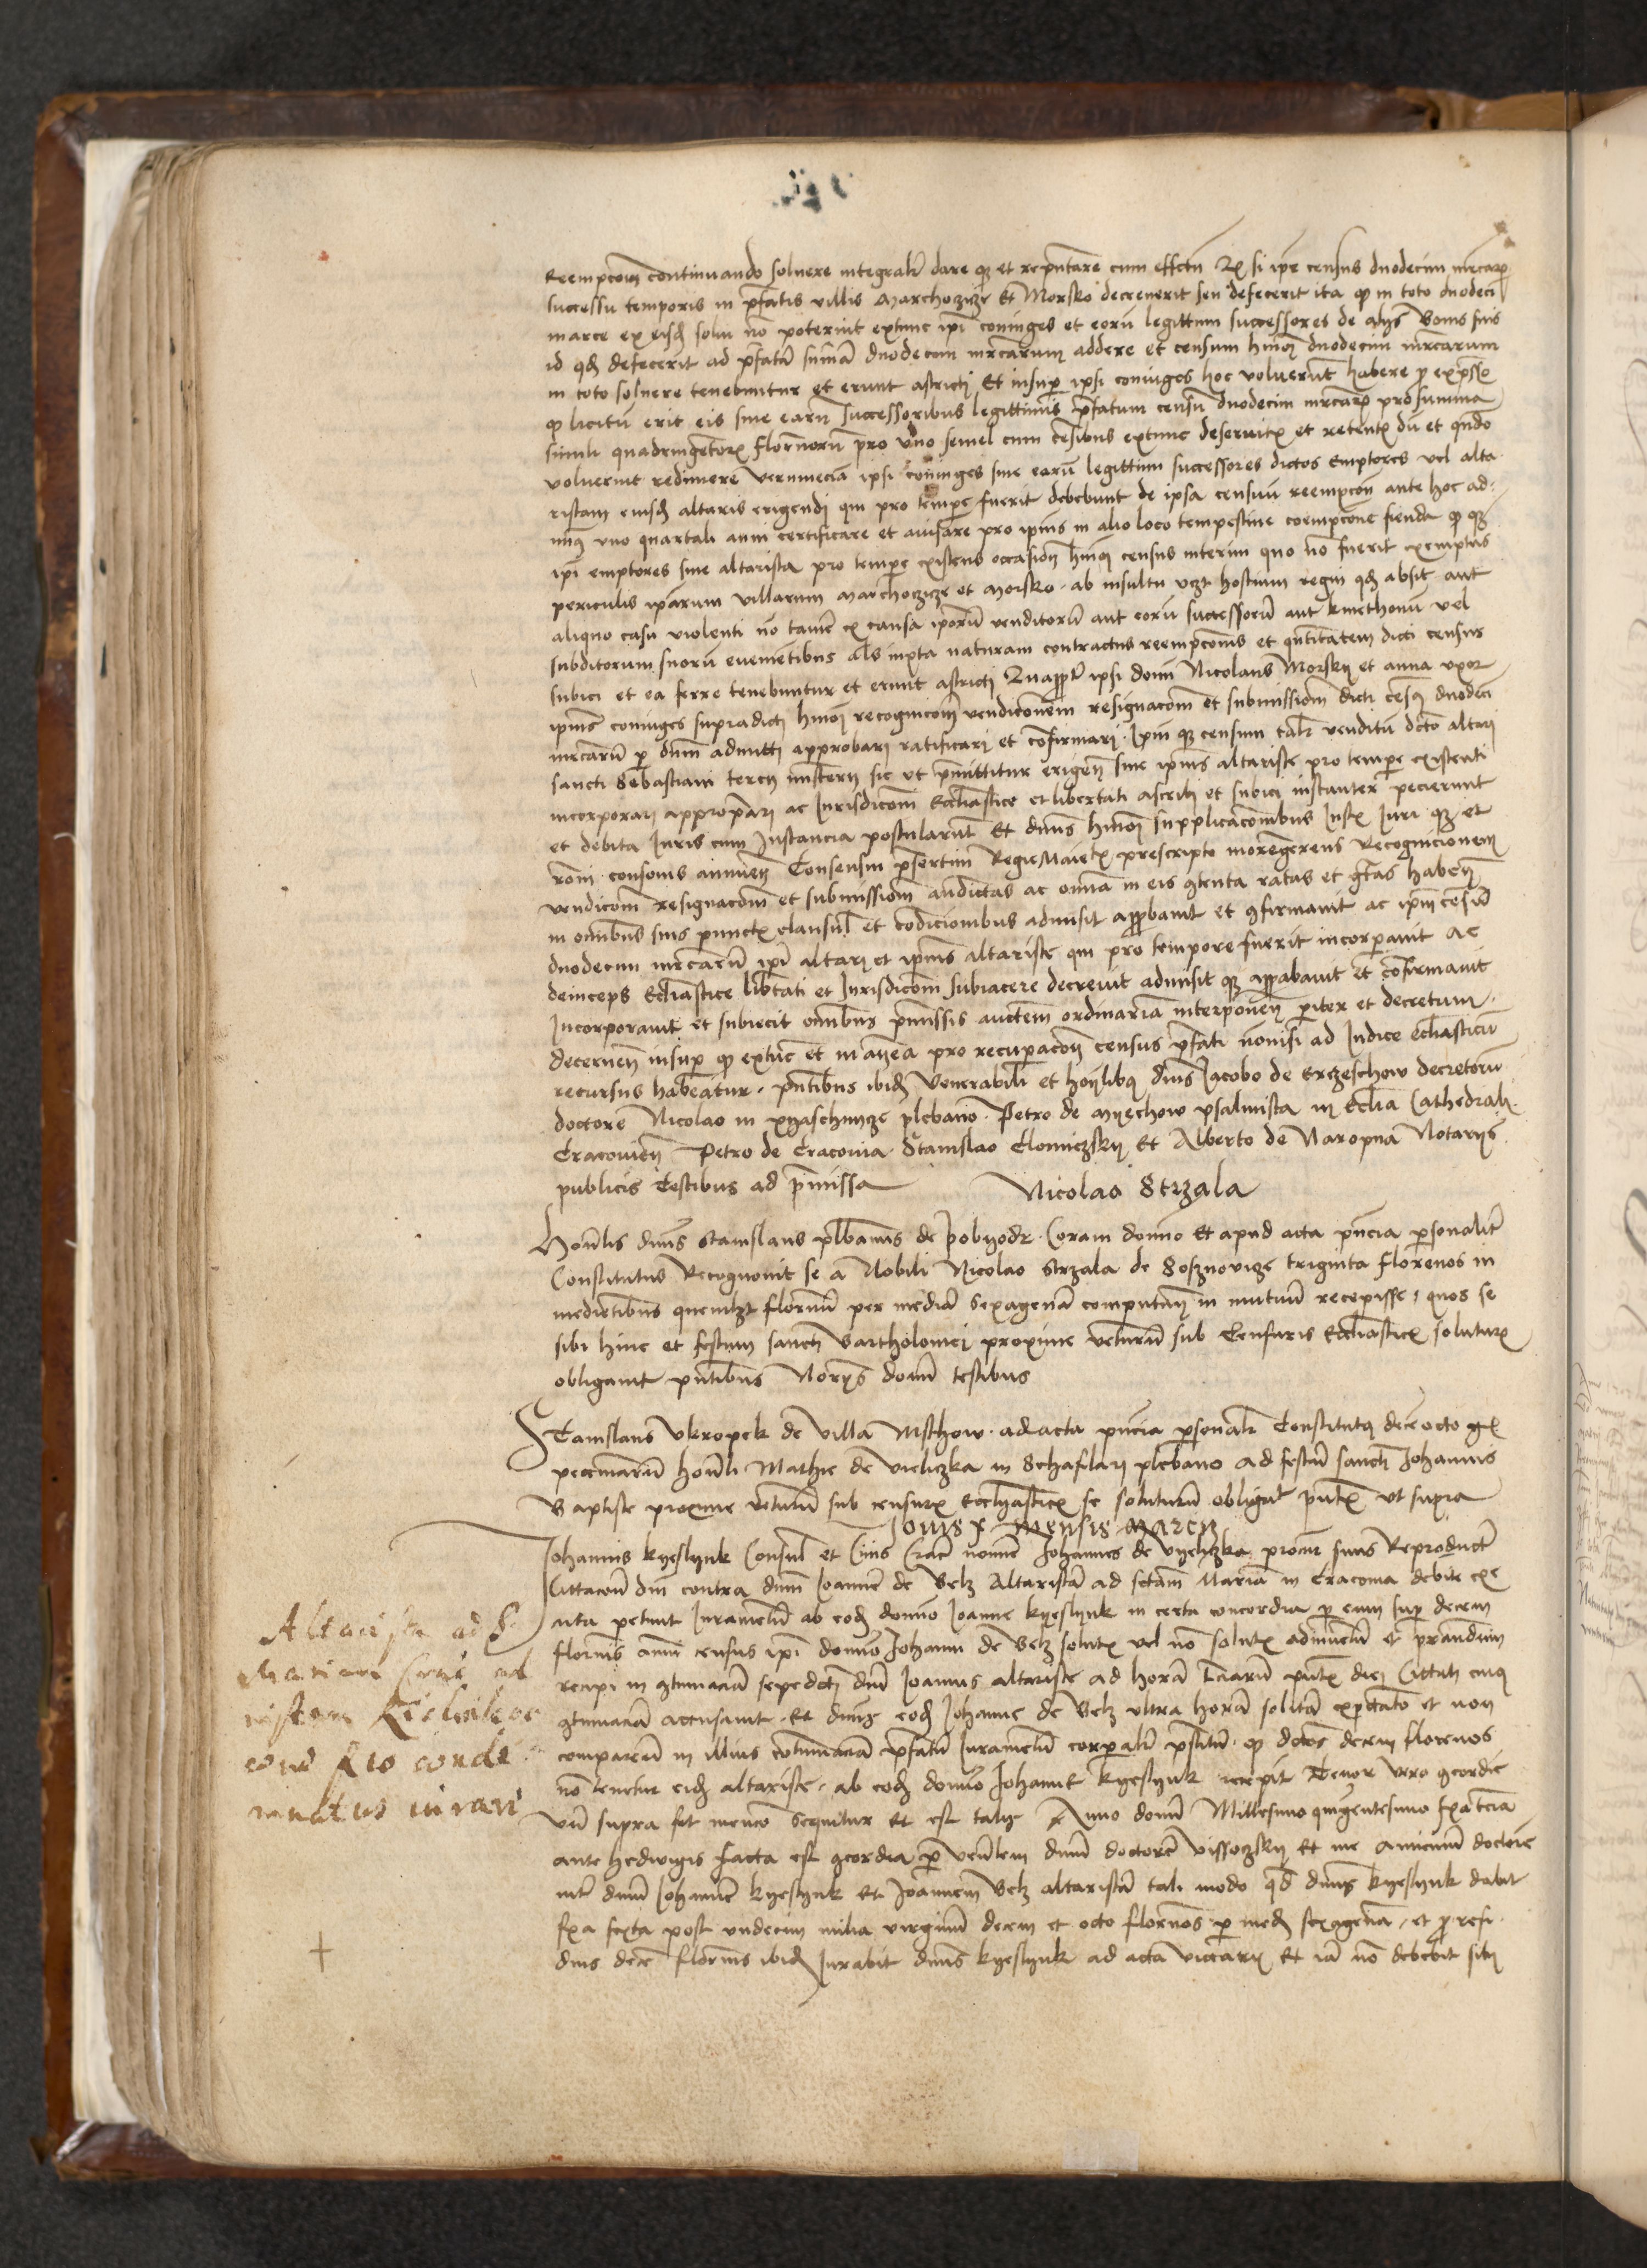 Reempcoem continuando solvere integralr dare qz et repñtare cum effctu Rx si ipe census duodecim mrcarz
successu temporis in pfatis villis Marchoczicze Et Morsko decreverit seu defecerit ita qp in toto duodeci
marce ex eisd solvi no poterint extunc ipi coniuges et eoru legittimi successores de alijs bonis suis
id qd defecerit ad pfata suma duodecim mrcarum addere et censum hmoi duodecim mrcarum
in toto solvere tenebuntur et erunt astricti Et insup ipsi coniuges hoc voluerut habere p expsso
qp licitu erit eis sive earu successoribus legittimis pfatum censu duodecim mrcarz pro summa
simili quadringetorz florenoru pro uno semel cum cesibus extunc deservitis et retentis du et qndo
voluerint redimere verumecia ipsi coniuges sive earu legittimi successores dictos emptores vel alta
ristam eiusd altaris erigendi qui pro tempe fuerit debebunt de ipsa censuu reempcon ante hoc ad
minus uno quartali anni certificare et avisare pro ipius in alio loco tempestive coempcone fienda qp qz
ipi emptores sive altarista pro tempe existens occasion hmoi census interim quo no fuerit exemptus
periculis iparum villarum Marchoczicze et Morsko ab insultu vczt hostium regni qd absit aut
aliquo casu violenti no tamen ex causa iporu venditoru aut eoru successoru aut kmethonu vel
subditorum suoru evenietibus als iuxta naturam contractus reempcomis et qntitatem dicti census
subici et ea ferre tenebuntur et erunt astricti Quapptr ipsi domi Nicolaus Morsky et anna uxor
ipius coniuges supradicti hmoi recognicoem vendicionem resignacom et submissiom dicti cesus duodeci
mrcaru p dnm admitti approbari ratificari et cofirmari Ipm qz censum talr venditu dcto altari
sancti Sebastiani tercij mistery sic ut pmittitur erigen sive ipius altariste pro tempe existenti
incorporari appropari ac Jurisdicom Ecclastice et libertati ascribi et subici instanter pecierunt
et debita Juris cum Instancia postularut Et dnus hmoi supplicacombus Justis Juri qz et
roni consonis annuen Consensui psertim Regie Maietis prescripto moregerens Recognicionem
vendicom resignacom et submissiom andictas ac omia in eis gtenta ratas et gras haben
in omibus suis punctis clausul et codicionibus admisit appbavit et gfirmavit ac ipm cesu
duodecim mrcaru ipi altari et ipius altariste qui pro tempore fuerit incorpavit Ac
deinceps Ecliastice libtati et Jurisdicom subiacere decrevit admisit qz appabavit et cofirmavit
Incorporavit et subiecit omibus pmissis auctem ordinaria interponen piter et decretum
decernen insup qp extuc et in antea pro recupacon census pfati nonisi ad Judice ecliasticu
recursus habeatur pntibus ibid Venerabili et honlibq dnis Jacobo de Erczeschow decretoru
doctore Nicolao in Xyaschnycze plebano Petro de Myechow psalmista in Ecclia Cathedrali
Cracovien Petro de Cracovia Stanislao Clomiczsky Et Alberto de Naropna Notarijs
publicis Testibus ad pmissa Nicolao Strzala
Honlis dnus Stanislaus plbanus de Pobyodr Coram domno Et apud acta pncia psonalitr
Constitutus Recognovit se a Nobili Nicolao Strzala de Sosznovicze triginta florenos in
medietibus quemlzt florenu per media sexagena computan in mutuu recepisse quos se
sibi hinc et festum sancti Bartholomei proxime venturu sub Censuris Eccliasticis soluturz
obligavit pntibus Norijs domi testibus
Stanislaus Ukropek de villa Mschow ad acta pncia psonalr Constitutq dece octo gs
pecuniaru honli Mathie de vieliczka in Schaflari plebano ad festu sancti Johannis
Baptiste proxime ventuu sub censuris Eccliasticis se soluturu obligat pntis ut supra
Jovis x mensis Marcij
Johannis kyeslynk Consul et Civis Crac nomine Johannes de vyeliczka procur suus Reproductr
Cittacoem dni contra dnm Joanne de Belz Altarista ad sctam Maria in Cracovia debite exe
cuta petiit Jurametu ab eod domno Joanne kyeslynk in certa concordia p eum sup decem
florenis anni census ipi domno Johanni de Belz solutis vel no solutis adinventu et prandium
recipi in gtumacia sepedcti dni Joannis altariste ad hora tciaru pntis diei Cittati cuiq
gtumacia accusavit Et dnus eod Johanne de Belz ultra hora solita expctato et non
comparen in illius cotumacia pfatu Jurametu corpalr pstitit qp dctos decem florenos
no tenetur eid altariste ab eod domno Johanne kyeslynk recepit Tenor vero gcordie
vn supra fit mencio Sequitur et est talis Anno domi Millesimo quigentesimo fxa tcia
ante hedwigis Facta est gcordia p venlem dnm doctore vissoczky Et me amicum doctore
intr dnm Johanne kyeslynk Et Joannem Belz altarista tali modo qd dnus kyeslynk dabit
fxa sexta post undecim milia virginu decem et octo florenos p med sexagena et p resi
duis dece florenis ibid Jurabit dnus kyeslynk ad acta viccarij Et ia no debebit sibi
Altarista ad S.
Mariam Crac ad
eius
+